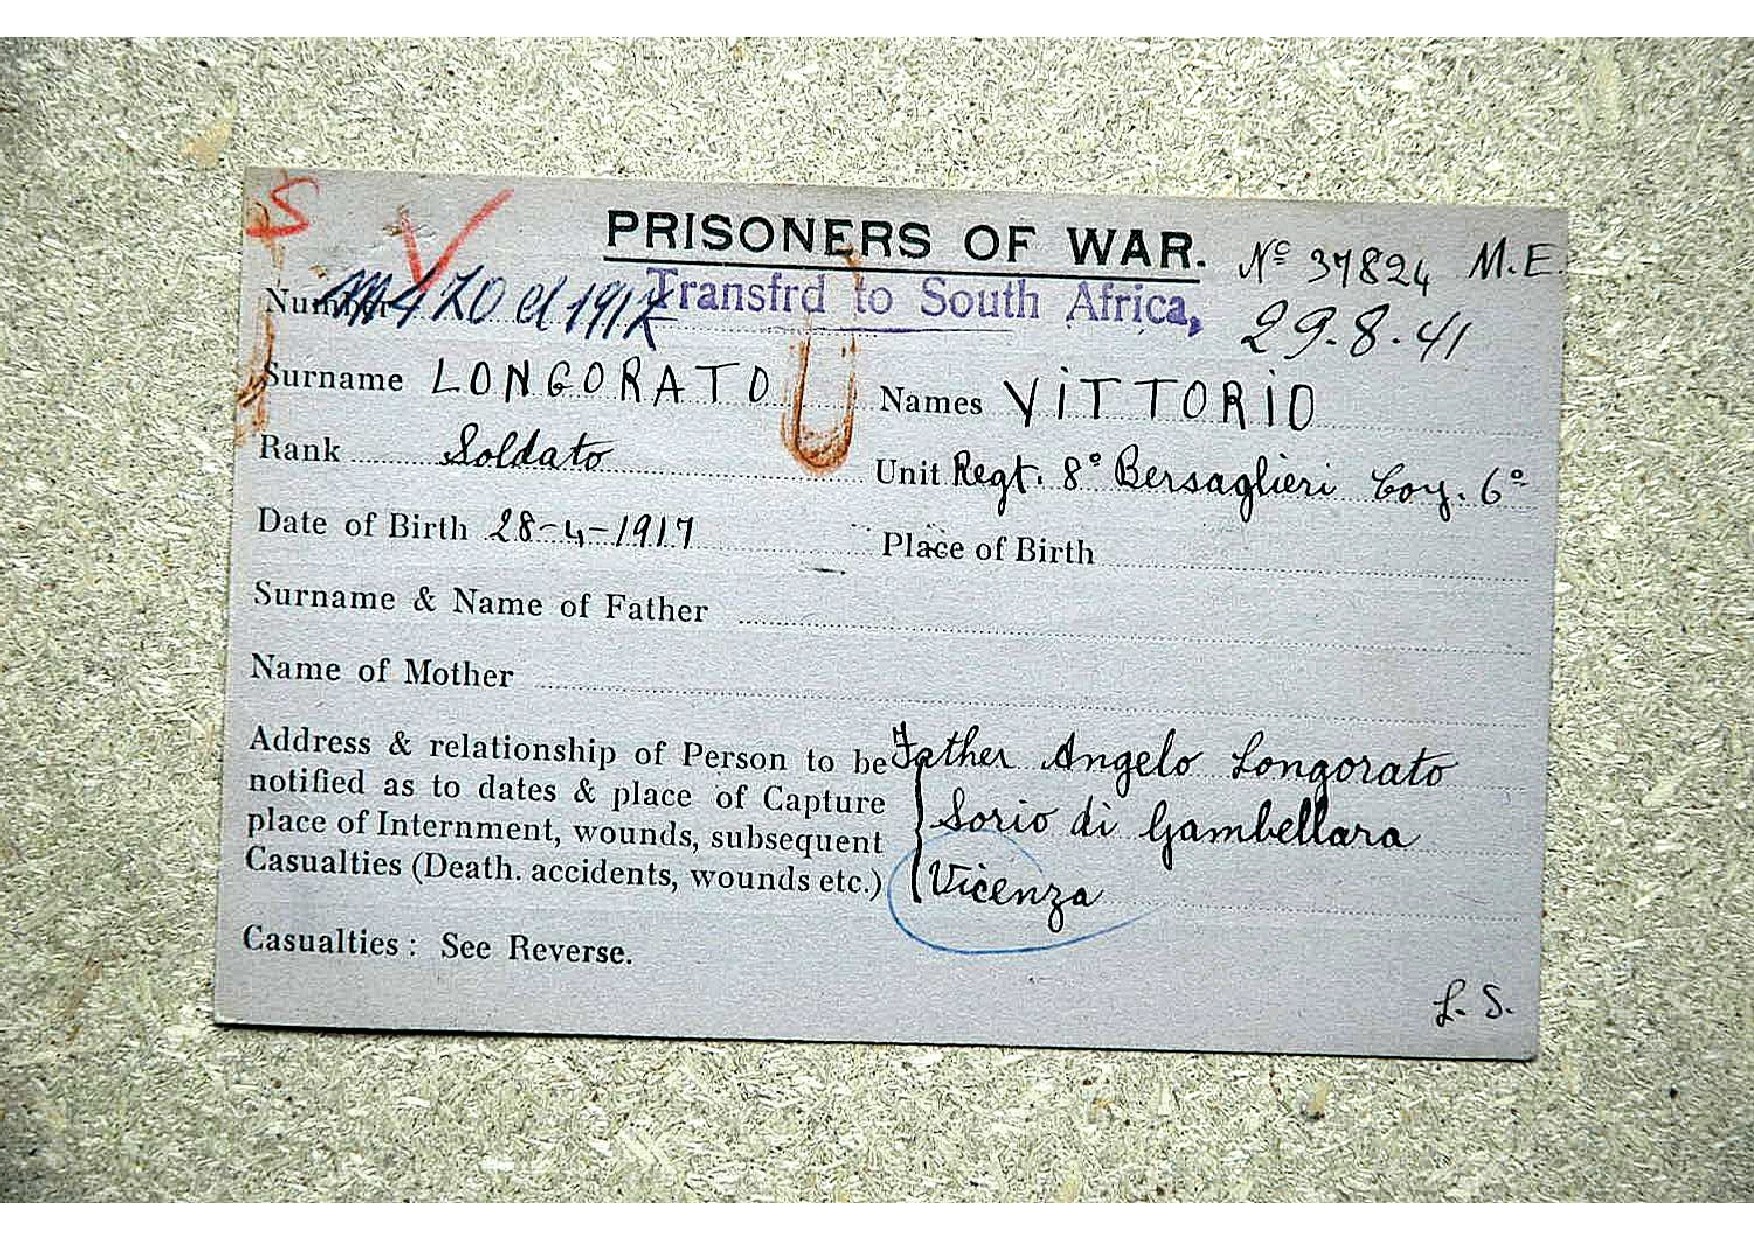 S
PRISONERS OF WAR. Nº 37824 M.E.
Number Transfrd to South Africa, 29.8.41
Surname LONGORATO Names VITTORIO
Rank Soldato Unit Regt. 8° Bersaglieri Coy. 6°
Date of Birth 28-4-1917 Place of Birth
Surname & Name of Father
Name of Mother
Address & relationship of Person to be Father Angelo Longorato
notified as to dates & place of Capture
place of Internment, wounds, subsequent Sorio di Gambellara
Casualties (Death. accidents, wounds etc.) Vicenza
Casualties : See Reverse.
L. S.